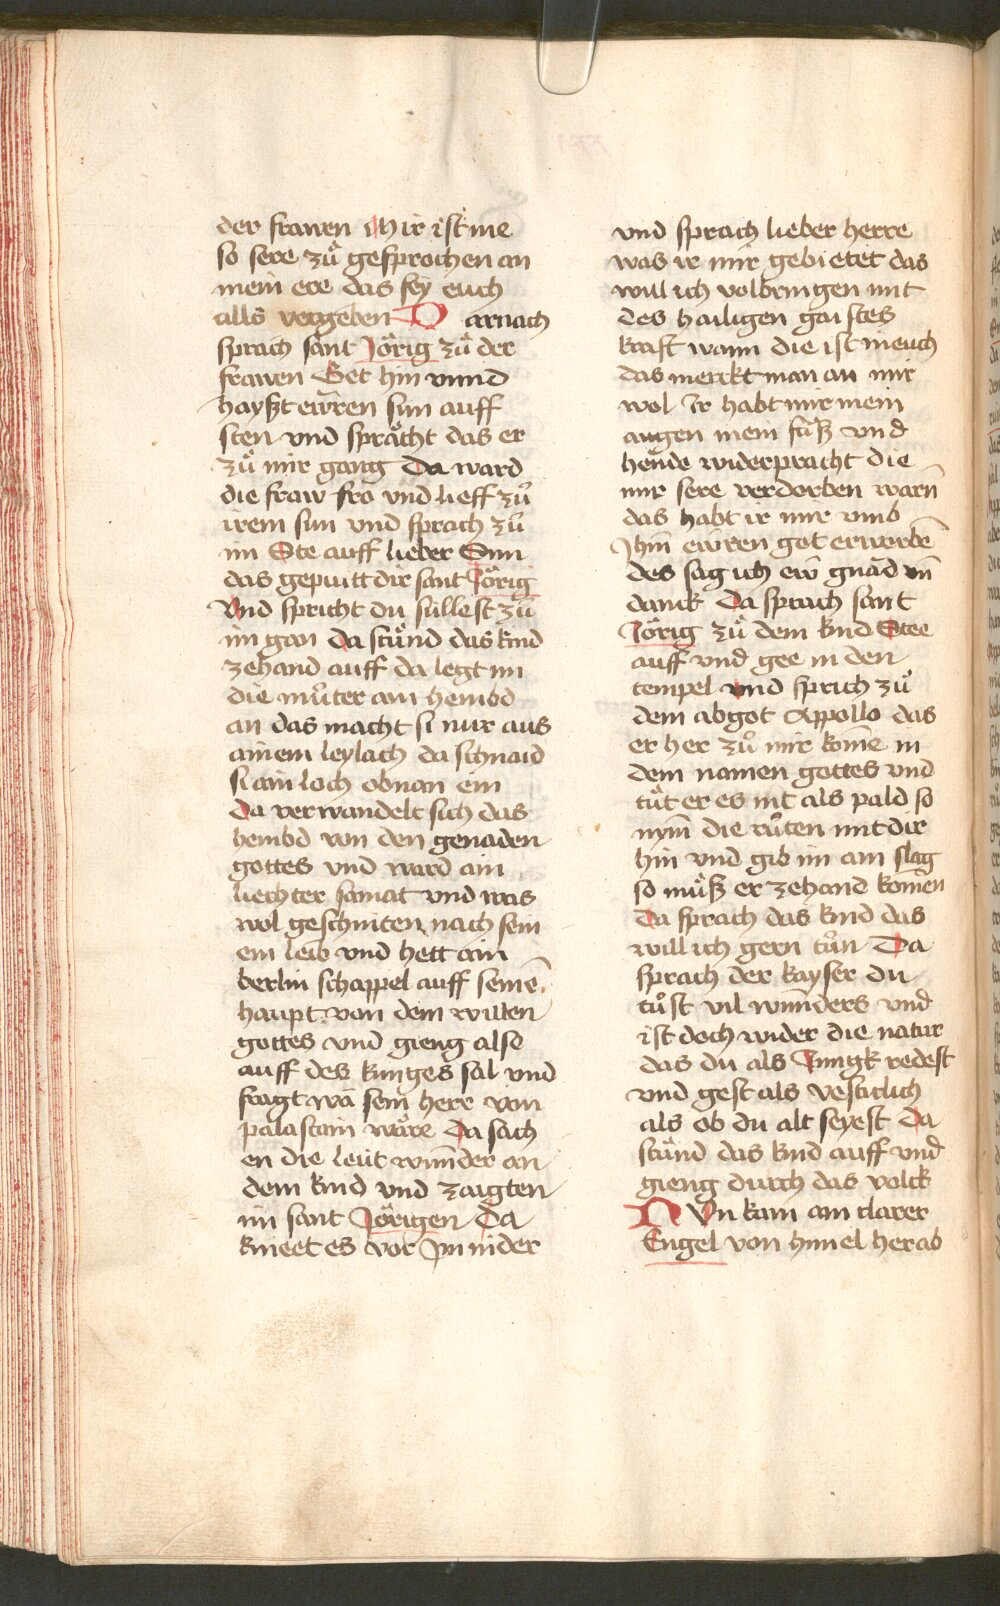 der frawen Mir ist me
so sere zuͦ gesprochen an
mein ere das sey euch
alls vergeben Darnach
sprach sant Jörig zuͦ der
frawen Get hin vnnd
hayßt ewren sun auff
sten vnd sprächt das er
zuͦ mir gang Da ward
die fraw fro vnd lieff zuͦ
irem sun vnd sprach zuͦ
im Ste auff lieber Sun
das geputt dir sant Jörig
Vnd spricht du süllest zuͦ
im gan da stuͦnd das kind
zehand auff da legt im
die muͦter ain hembd
an das macht si nur aus
ainem leylach da schnaid
si ain loch obnan ein
Da verwandelt sich das
hembd von den genaden
gottes vnd ward ain
liechter samat vnd was
wol geschniten nach sein
em leib vnd hett ain
berlin schappel auff seinē
haupt von dem willen
gottes vnd gieng also
auff des kunges sal vnd
fragt wa sein herr von
palastain wäre Da sach
en die leüt wunder an
dem kind vnd zaigten
im sant Jörigen Da
knieet es vor Jm nider
vnd sprach lieber herre
was ir mir gebietet das
will ich volbringen mit
des hailigen gaistes
kraft wann die ist in euch
das merckt man an mir
wol Ir habt mir mein
augen mein fuͤß vnd
hende widerpracht die
mir sere verdorben warn
das habt ir mir vmb
Jhm̄ ewren got erworbē
des sag ich ew̄ gnad vn̄
danck Da sprach sant
Jörig zuͦ dem kind Stee
auff vnd gee in den
tempel vnd sprich zuͦ
dem abgot Appollo das
er her zuͦ mir kom̄e in
dem namen gottes vnd
tuͤt er es nit als pald so
nym̄ die ruͦten mit dir
hin vnd gib im ain slag
so muͤß er zehand kom̄en
Da sprach das kind das
will ich gern tuͦn Da
sprach der kayser du
tuͦst vil wunders vnd
ist doch wider die natur
das du als Jungk redest
vnd gest als vesticlich
als ob du alt seyest Da
stuͦnd das kind auff vnd
gieng durch das volck
NVn kam ain clarer
Engel von himel herab